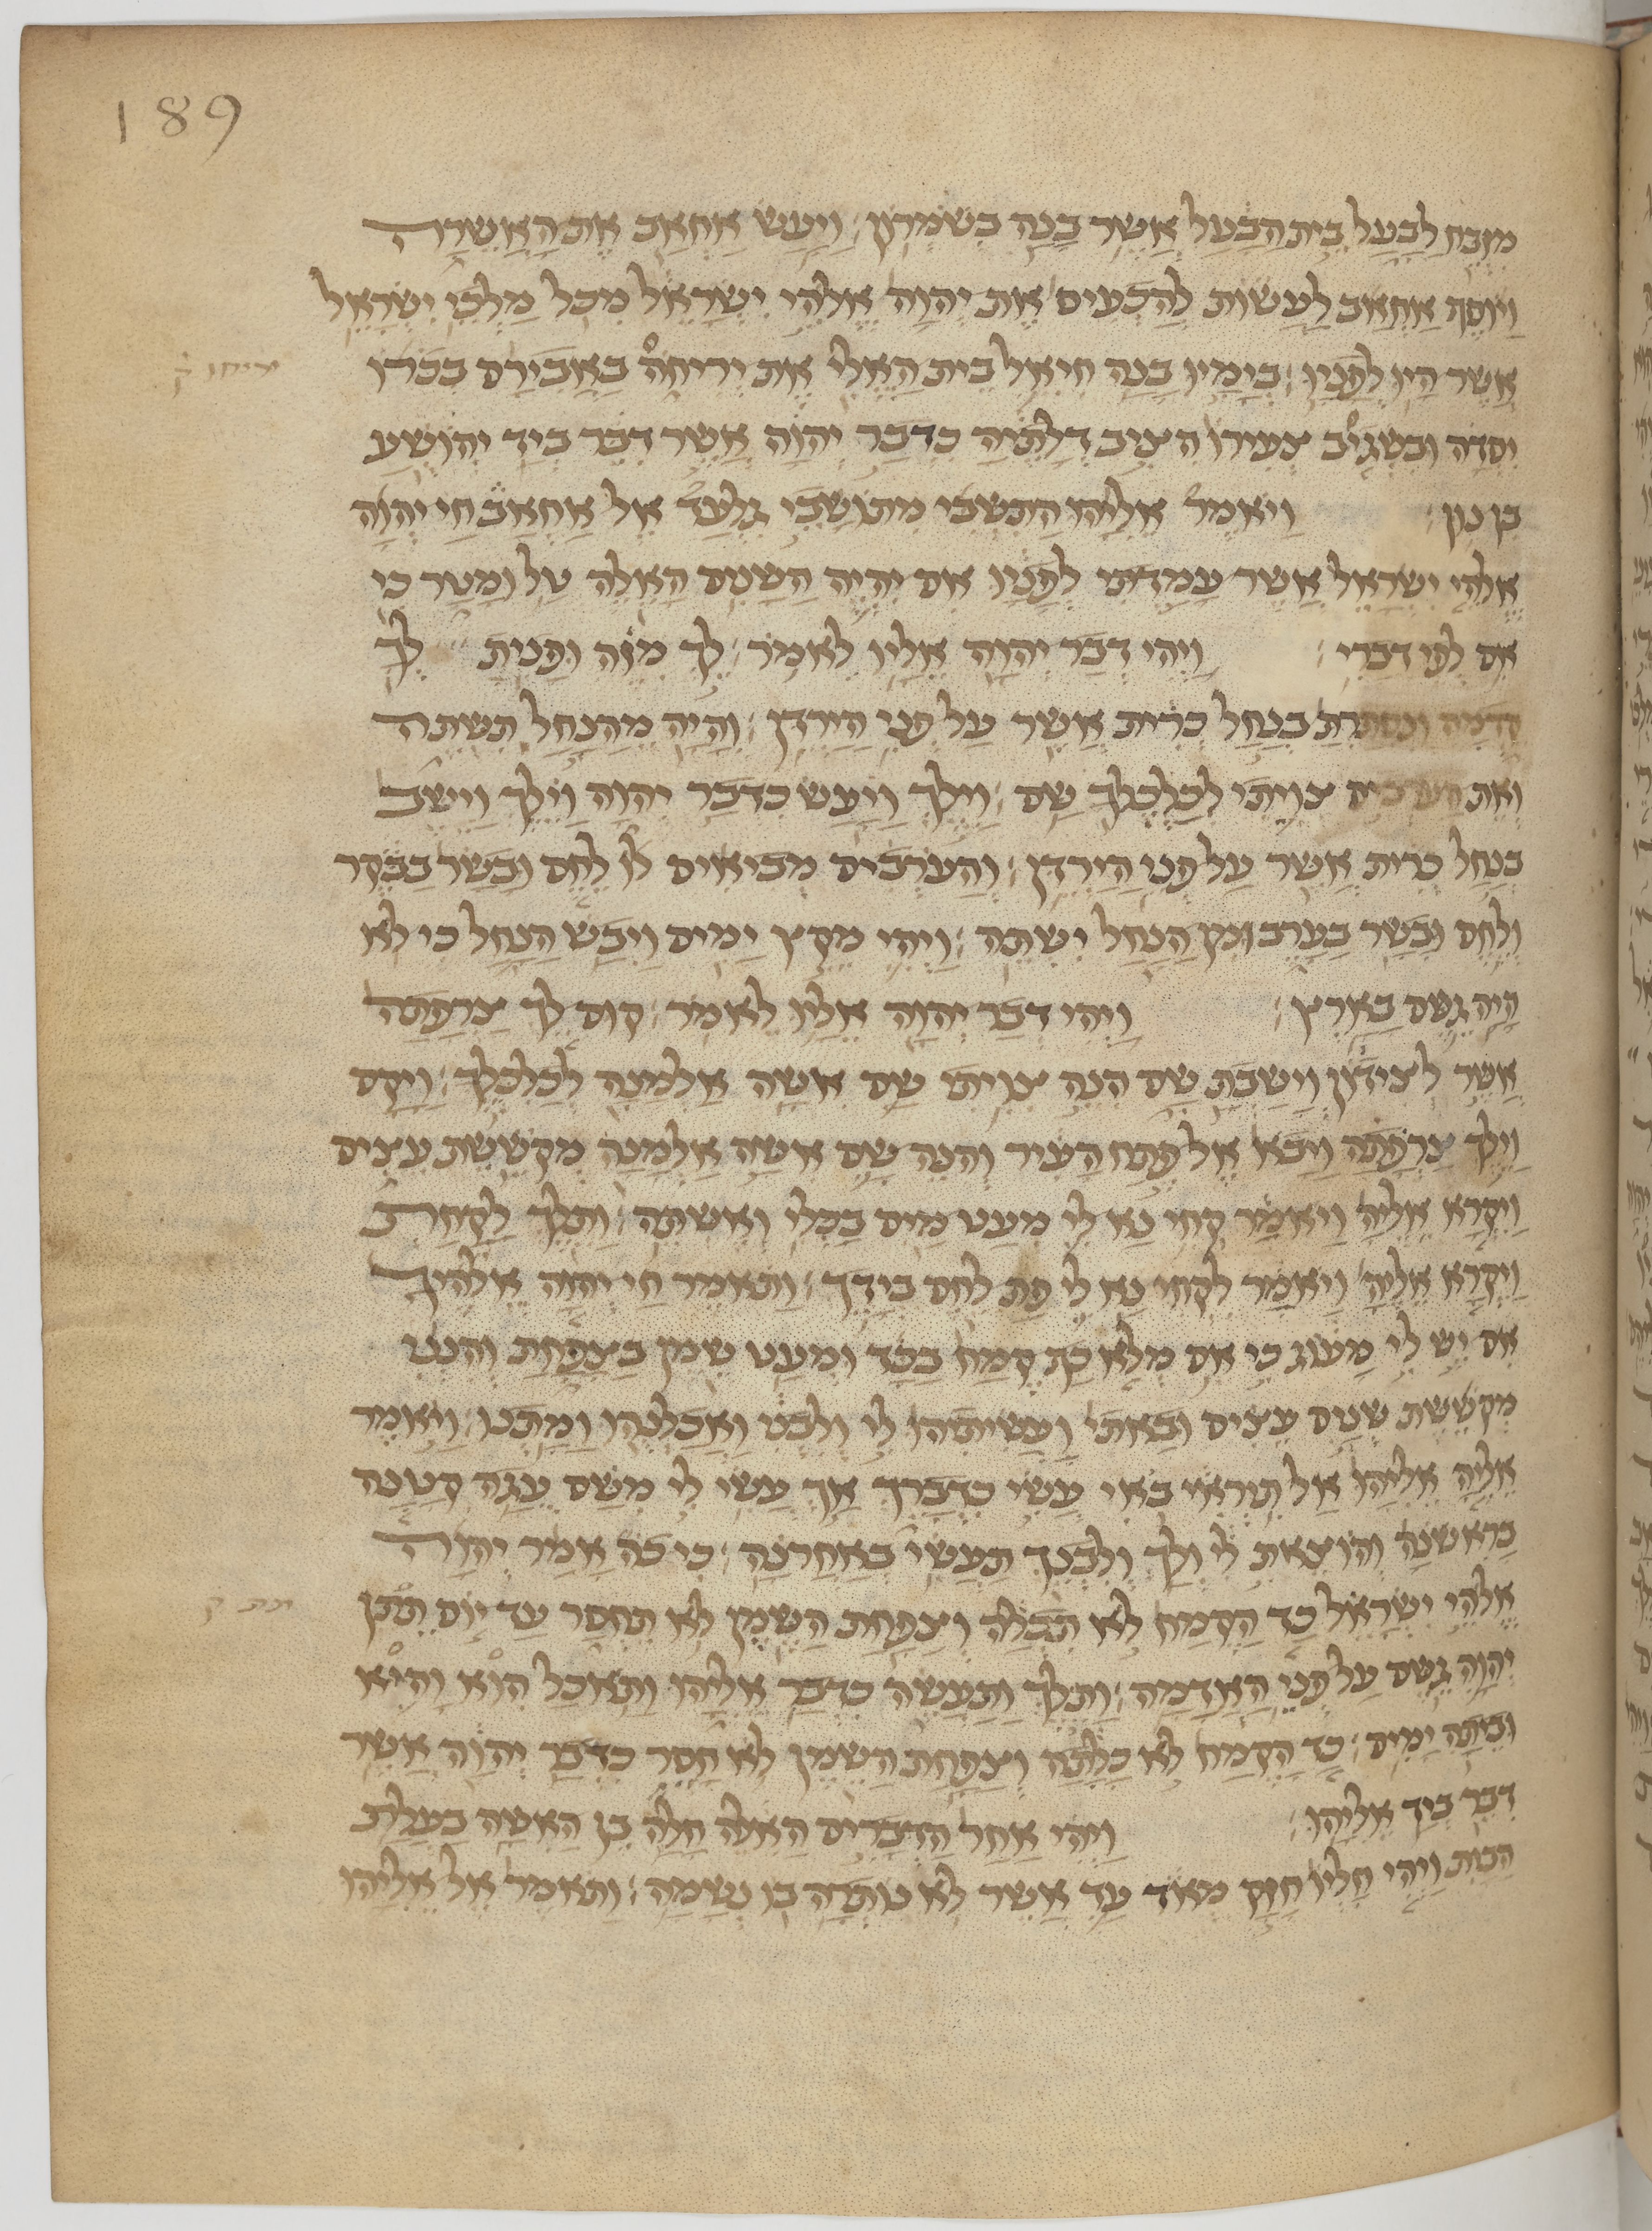 189
מזבח לבעל בית הבעל אשר בנה בשמרון: ויעש אחאב את האשרה
ויוסף אחאב לעשות להכעיס את יהוה אלהי ישראל מכל מלכי ישראל
אשר היו לפניו: בימיו בנה חיאל בית האלי את יריחה באבירם בכרו
יסדה ובשגיב צעירו הציב דלתיה כדבר יהוה אשר דבר ביד יהושע
בן נון: ויאמר אליהו התשבי מתושבי גלעד אל אחאב חי יהוה
אלהי ישראל אשר עמדתי לפניו אם יהיה השנים האלה טל ומטר כי
אם לפי דברי: ויהי דבר יהוה אליו לאמר: לך מזה ופנית לך
קדמה ונסתרת בנחל כרית אשר על פני הירדן: והיה מהנחל תשתה
ואת הערבים צויתי לכלכלך שם: וילך ויעש כדבר יהוה וילך וישב
בנחל כרית אשר על פני הירדן: והערבים מביאים לו לחם ובשר בבקר
ולחם ובשר בערב ומן הנחל ישתה: ויהי מקץ ימים ויבש הנחל כי לא
היה גשם בארץ: ויהי דבר יהוה אליו לאמר: קום לך צרפתה
אשר לצידון וישבת שם הנה צויתי שם אשה אלמנה לכלכלך: ויקם
וילך צרפתה ויבא אל פתח העיר והנה שם אשה אלמנה מקששת עצים
ויקרא אליה ויאמר קחי נא לי מעט מים בכלי ואשתה: ותלך לקחת
ויקרא אליה ויאמר לקחי נא לי פת לחם בידך: ותאמר חי יהוה אלהיך
אם יש לי מעוג כי אם מלא כף קמח בכד ומעט שמן בצפחת והנני
מקששת שנים עצים ובאתי ועשיתיהו לי ולבני ואכלנהו ומתנו: ויאמר
אליה אליהו אל תיראי באי עשי כדברך אך עשי לי משם עגה קטנה
בראשנה והוצאת לי ולך ולבנך תעשי באחרנה: כי כה אמר יהוה
אלהי ישראל כד הקמח לא תכלה וצפחת השמן לא תחסר עד יום תתן
יהוה גשם על פני האדמה: ותלך ותעשה כדבר אליהו ותאכל הוא והיא
וביתה ימים: כד הקמח לא כלתה וצפחת השמן לא חסר כדבר יהוה אשר
דבר ביד אליהו: ויהי אחר הדברים האלה חלה בן האשה בעלת
הבית ויהי חליו חזק מאד עד אשר לא נותרה בו נשמה: ותאמר אל אליהו